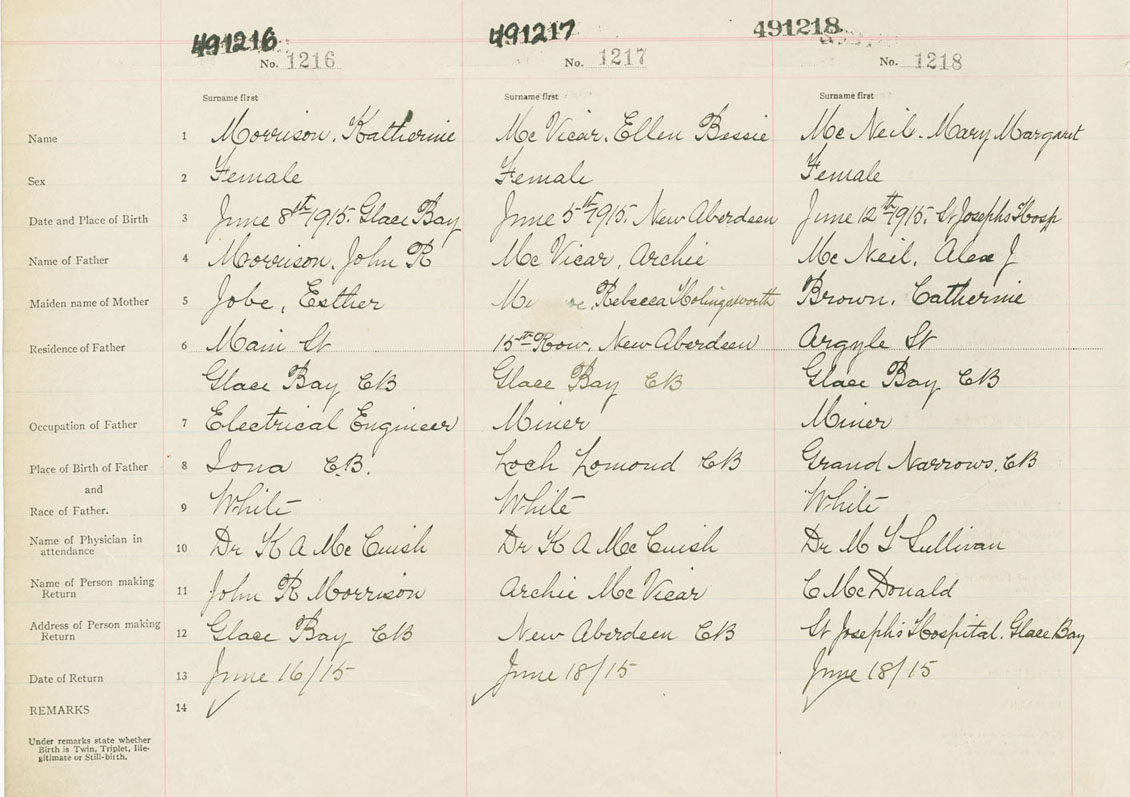 491216 491217 491218
No. 1216 No. 1217 No. 1218
Surname first Surname first Surname first
Name 1 Morrison, Katherine Mc Vicar, Ellen Bessie Mc Neil. Mary Margaret
Sex 2 Female Female Female
Date and Place of Birth 3 June 8th 1915. Glace Bay June 5th 1915. New Aberdeen June 12th 1915. St Josephs Hosp
Name of Father 4 Morrison, John R Mc Vicar, Archie Mc Neil, Alex J
Maiden name of Mother 5 Jobe, Esther Rebecca Holingsworth Brown, Catherine
Residence of Father 6 Main St 15th Row, New Aberdeen Argyle St
Glace Bay CB Glace Bay CB Glace Bay CB
Occupation of Father 7 Electrical Engineer Miner Miner
Place of Birth of Father 8 Iona C.B. Loch Lomond CB Grand Narrows, CB
and
Race of Father. 9 White White White
Name of Physician in
attendance 10 Dr K A Mc Cuish Dr K A Mc Cuish Dr M T Sullivan
Name of Person making
Return 11 John R Morrison Archie Mc Vicar C McDonald
Address of Person making
Return 12 Glace Bay CB New Aberdeen CB St Joseph's Hospital. Glace Bay
Date of Return 13 June 16/15 June 18/15 June 18/15
REMARKS 14
Under remarks state whether
Birth is Twin, Triplet, Ille-
gitimate or Still-birth.